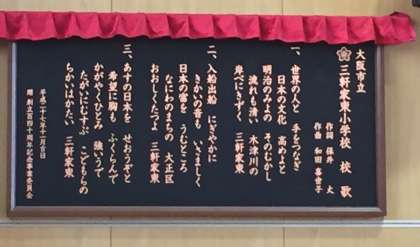 大阪市立
三軒家東小学校 校歌
作詞 保井 丈
作曲 和田 喜世子
一、世界の人と 手をつなぎ
日本の文化 高めよと
明治のみよの そのむかし
流れも清い 木津川の
岸べにもずく 三軒家東
二、入船出船 にぎやかに
きかいの音も いさましく
日本の富を うむところ
なにわのまちの 大正区
おおしくたつよ 三軒家東
三、あすの日本を せおうぞと
希望に胸も ふくらんで
かがやくひとみ 強いうで
たがいにむすぶ こどもらの
ちかいはかたい、三軒家東
平成二十七年十一月吉日
贈 創立百四十周年記念事業委員会